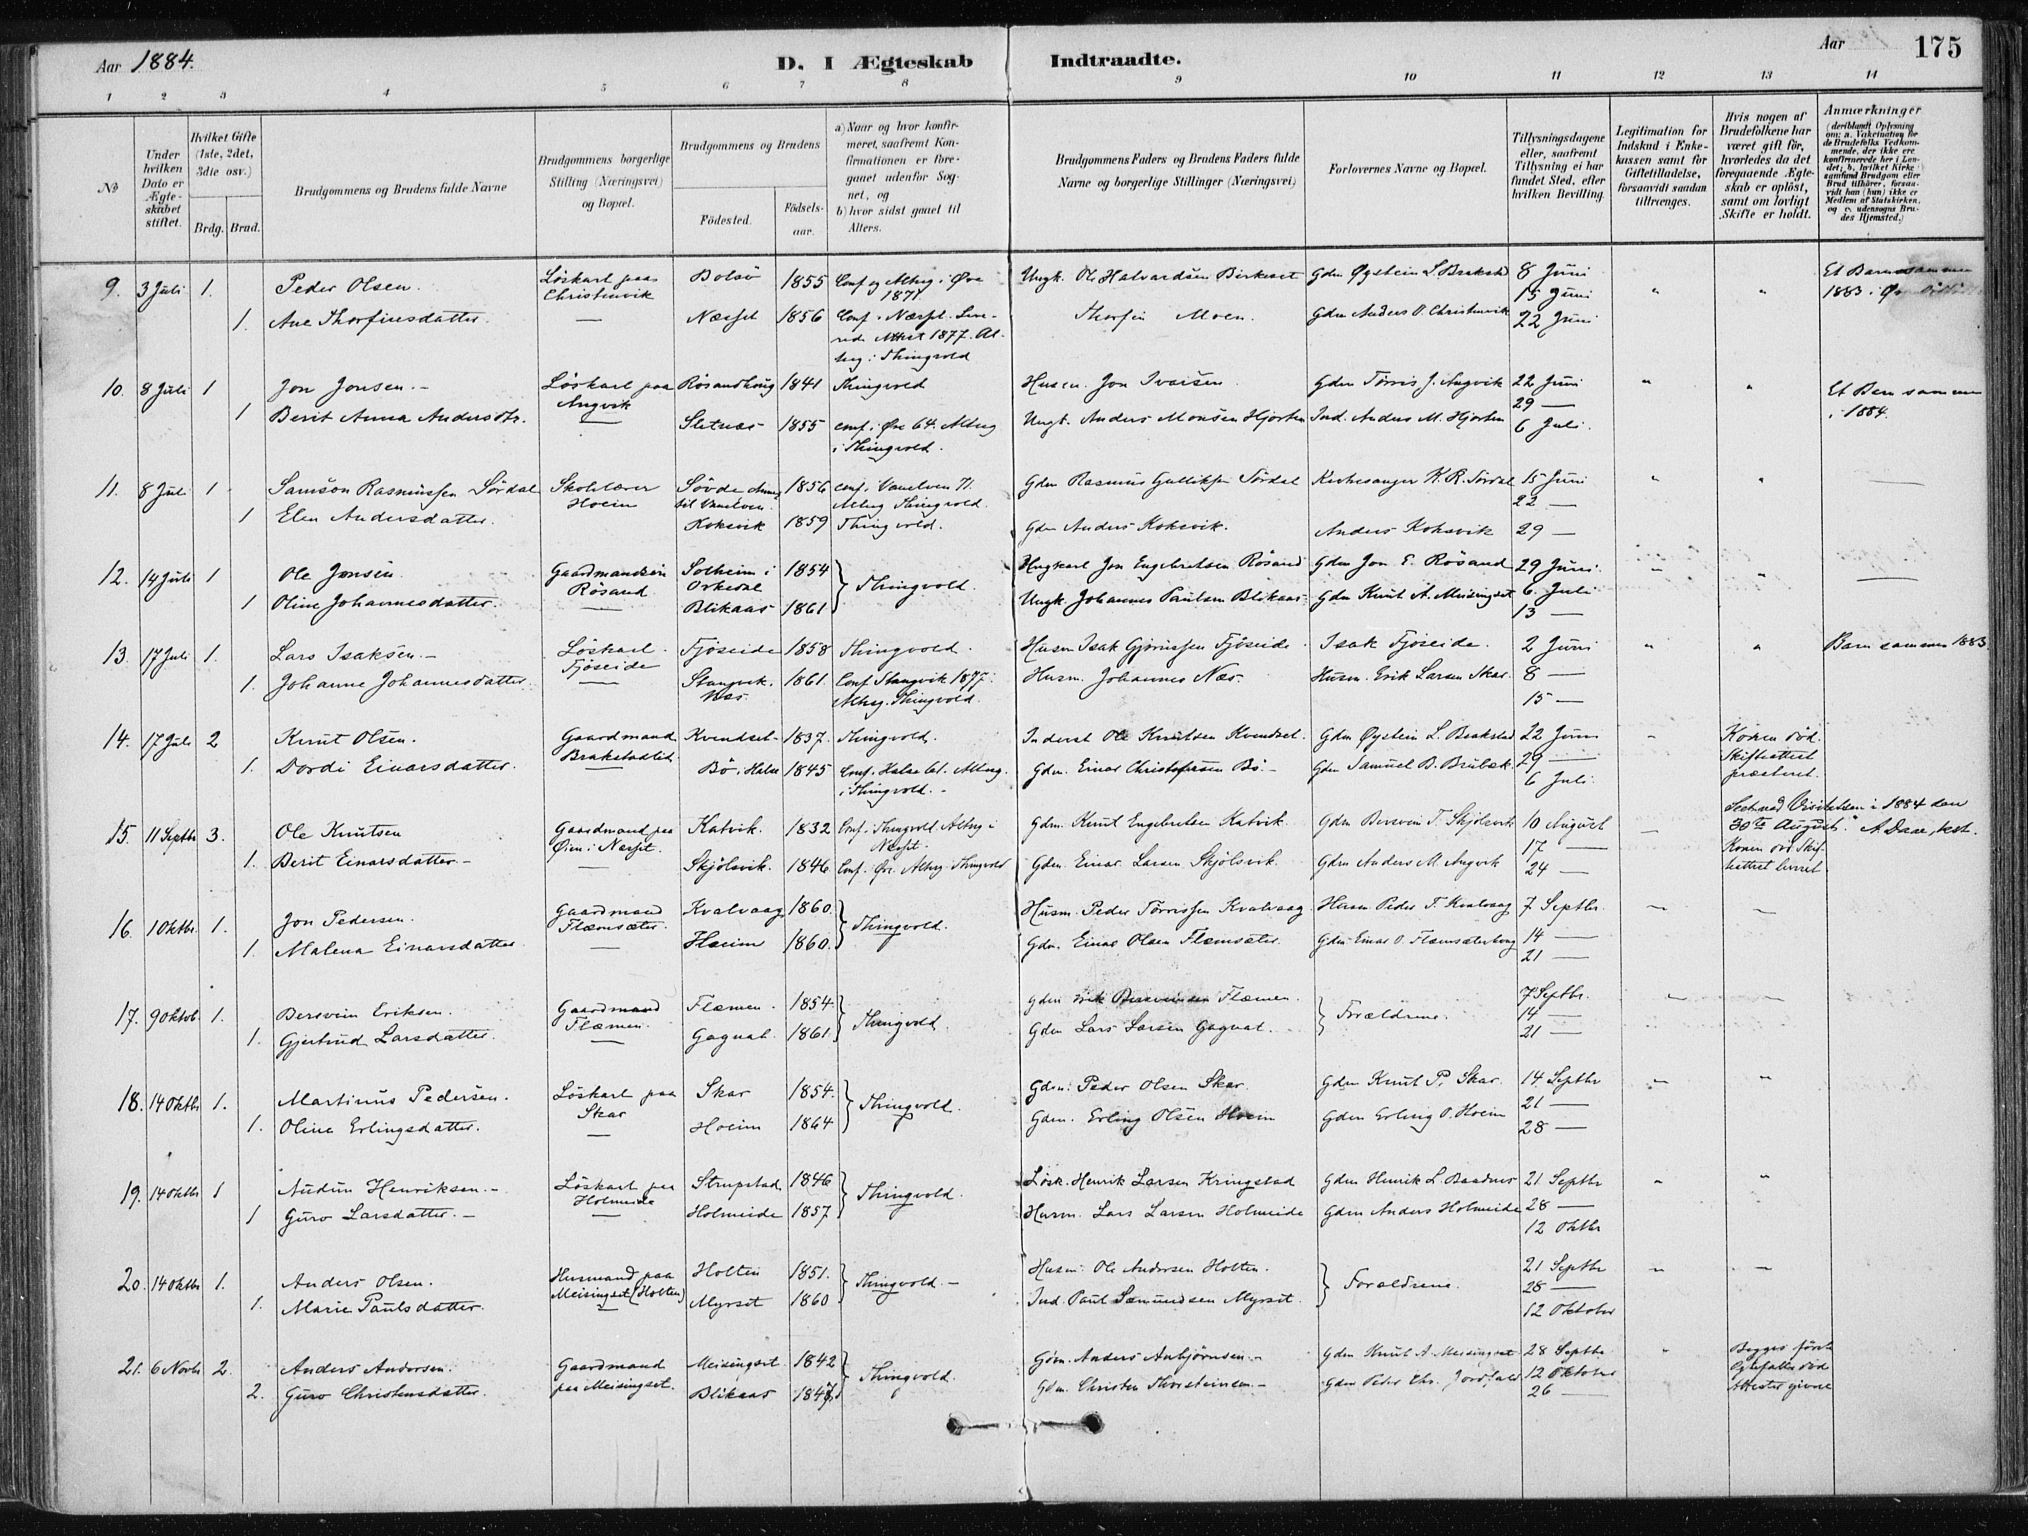 Aar 1884.
D. I Ægteskab Indtraadte.
Aar
175
1 2 3 4 5 6 7 8 9 10 11 12 13 14
No
Under hvilken Dato er Ægteskabet stiftet.
Hvilket Gifte (1ste, 2det, 3die osv.)
Brdg. Brud.
Brudgommens og Brudens fulde Navne
Brudgommens borgerlige Stilling (Næringsvei) og Bopæl.
Brudgommens og Brudens
Födested. Födselsaar.
a) Naar og hvor konfirmeret, saafremt Konfirmationen er foregaaet udenfor Sognet, og
b) hvor sidst gaaet til Alters.
Brudgommens Faders og Brudens Faders fulde Navne og borgerlige Stillinger (Næringsvei)
Forlovernes Navne og Bopæl.
Tillysningsdagene eller, saafremt Tillysning ei har fundet Sted, efter hvilken Bevilling.
Legitimation for Indskud i Enkekassen samt for Giftetilladelse, forsaavidt saadan tiltrænges.
Hvis nogen af Brudefolkene har været gift för, hvorledes da det foregaaende Ægteskab er oplöst, samt om lovligt Skifte er holdt.
Anmærkninger (deriblandt Oplysning om: a. Vakcination for de Brudefolks Vedkommende, der ikke ere konfirmerede her i Landet; b. hvilket Kirkesamfund Brudgom eller Brud tilhörer, forsaavidt han (hun) ikke er Medlem af Statskirken, og c. udensogns Brudes Hjemsted.)
9. 3 Juli 1. Peder Olsen. Löskarl paa Christinvik Bolsö 1855 Conf og Altrg. i Øre 1871 Ungk. Ole Halvardsen Birkeset Gdm Øystein L. Brakstad 8 Juni " " Et Barn sammen 1883 i Ø
15 Juni
1. Ane Thorfinsdatter. — Næsset 1856 Conf. i Næsset. Attest 1877. Altrg. i Thingvold Thorfin Moen. Gdm Anders O. Christinvik 22 Juni
10. 8 Juli 1 Jon Jonsen.- Löskarl paa Angvik Røsandhaug 1841 Thingvold Husm. Jon Ivarsen. Gdm Tørris J. Angvik 22 Juni " " Et Barn sammen i 1884.
29 —
1 Berit Anna Andersdtr. — Sletnæs 1855 conf. i Øre 64. Altrg i Thingvold. Ungk. Anders Monsen Hjorten Ind. Anders M. Hjorten 6 Juli.
11. 8 Juli 1 Samson Rasmussen Sördal Skolelærer Hoem Søvde Annex til Vanelven 1856 conf. i Vanelven 71. Altrg Thingvold. Gdm Rasmus Gulliksen Sördal Kirkesanger K. R. Sördal 15 Juni " " —
22 —
1 Elen Andersdatter. Koksvik 1859 Thingvold. Gdm Anders Koksvik. Anders Koksvik 29 —
12. 14 Juli 1 Ole Jonsen Gaardmandssön Røsand Solheim i Orkedal 1854 } Thingvold. Ungkarl Jon Engebretsen Røsand Gdm Jon E. Røsand 29 Juni " " —
6 Juli
1 Oline Johannesdatter. — Blikaas 1861 Ungk Johannes Paulsen Blikaas Gdm Knut A. Meisingset 13 —
13. 17 Juli 1. Lars Isaksen.- Löskarl Fjöseide Fjöseide 1858 Thingvold. Husm Isak Gjörnssen Fjöseide Isak Fjöseide. 2 Juni " " Barn sammen 1883
1. Johanne Johannesdatter — Stangvik. Næs. 1861 Conf Stangvik 1877. Altrg. Thingvold. Husm. Johannes Næs. Husm. Erik Larsen Skar 8 —
15 —
14. 17 Juli 2 Knut Olsen. Gaardmand Brakstadlid Kvendset 1837. Thingvold. Inderst Ole Knutsen Kvendset. Gdm Øystein L. Brakstad 22 Juni " Konen död. Skifteattest præsteret.
29 —
1. Dordi Einarsdatter. — Bö i Halse 1845 Conf. i Halse 61. Altrg. i Thingvold. - Gdm. Einar Christophersen Bö.- Gdm Samuel B. Brubæk. 6 Juli.
Seet ved Visitatsen i 1884 den 30te August. A. Daae, test.
15. 11 Septbr 3. Ole Knutsen Gaardmand paa Øien i Næsset. Katvik. 1832 Conf. i Thingvold Altrg i Næsset. Gdm. Knut Engebretsen Katvik. Gdm Bersvein T. Skjölsvik 10 August — Konen död Skifteattest leveret.
17 —
1. Berit Einarsdatter — — Skjölsvik. 1846 Conf. Øre. Altrg. Thingvold Gdm. Einar Larsen Skjölsvik. Gdm Anders M. Angvik 24 —
16. 1 Oktbr. 1. Jon Pedersen. Gaardmand Flæmsæter. Kvalvaag 1860. } Thingvold. Husm. Peder Tørrissen Kvalvaag Husm Peder T. Kvalvaag 7 Septbr. — —
14 —
1. Malena Einarsdatter — Hoeim 1860. Gdm. Einar Olsen Flæmsæter. Gdm Einar O. Flæmsæterhaug 21 —
17. 9 Oktob. 1. Bersvein Eriksen. Gaardmand Flæmen. Flæmen. 1854. } Thingvold. Gdm Erik Bersveinsen Flæmen. } Forældrene. 7 Septbr. — "
14 —
1. Gjertrud Larsdatter. — Gagnat. 1861. Gdm Lars Larsen Gagnat. 21 —
18. 14 Oktbr 1. Martinus Pedersen. Löskarl paa Skar Skar 1854. } Thingvold. Gdm. Peder Olsen Skar. Gdm Knut P. Skar. 14 Septbr — "
21 —
1. Oline Erlingsdatter. — Hoeim 1864 Gdm. Erling Olsen Hoeim Gdm Erling O. Hoeim 28 —
19. 14 Oktbr 1 Audun Henriksen.- Löskarl paa Holmeide Strupstad 1846 } Thingvold. Løsk. Henrik Larsen Kringstad Gdm Henrik L. Baadnes 21 Septbr " "
28 —
1 Guro Larsdatter. - — Holmeide 1857 Husm. Lars Larsen Holmeide Gdm Anders Holmeide 12 Oktbr
20. 14 Oktbr 1. Anders Olsen. Husmand paa Meisingset (Holten) Holten 1851. } Thingvold.- Husm. Ole Andersen Holten. } Forældrene. 21 Septbr — —
28 —
1. Marie Paulsdatter. — Myrset 1860 Ind. Paul Sæmundsen Myrset. 12 Oktober
21. 6 Novbr 2. Anders Andersen. Gaardmand paa Meisingset. Meisingset 1842 } Thingvold. Gdm. Anders Anbjørnsen.- Gdm Knut A. Meisingset 28 Septbr " Begges förste Ægtefæller död Attester givne
12 Oktober
2. Guro Christensdatter. Blikaas 1847 Gdm. Christen Thorsteinsen.- Gdm Peder Chr. Jordfald 26 —